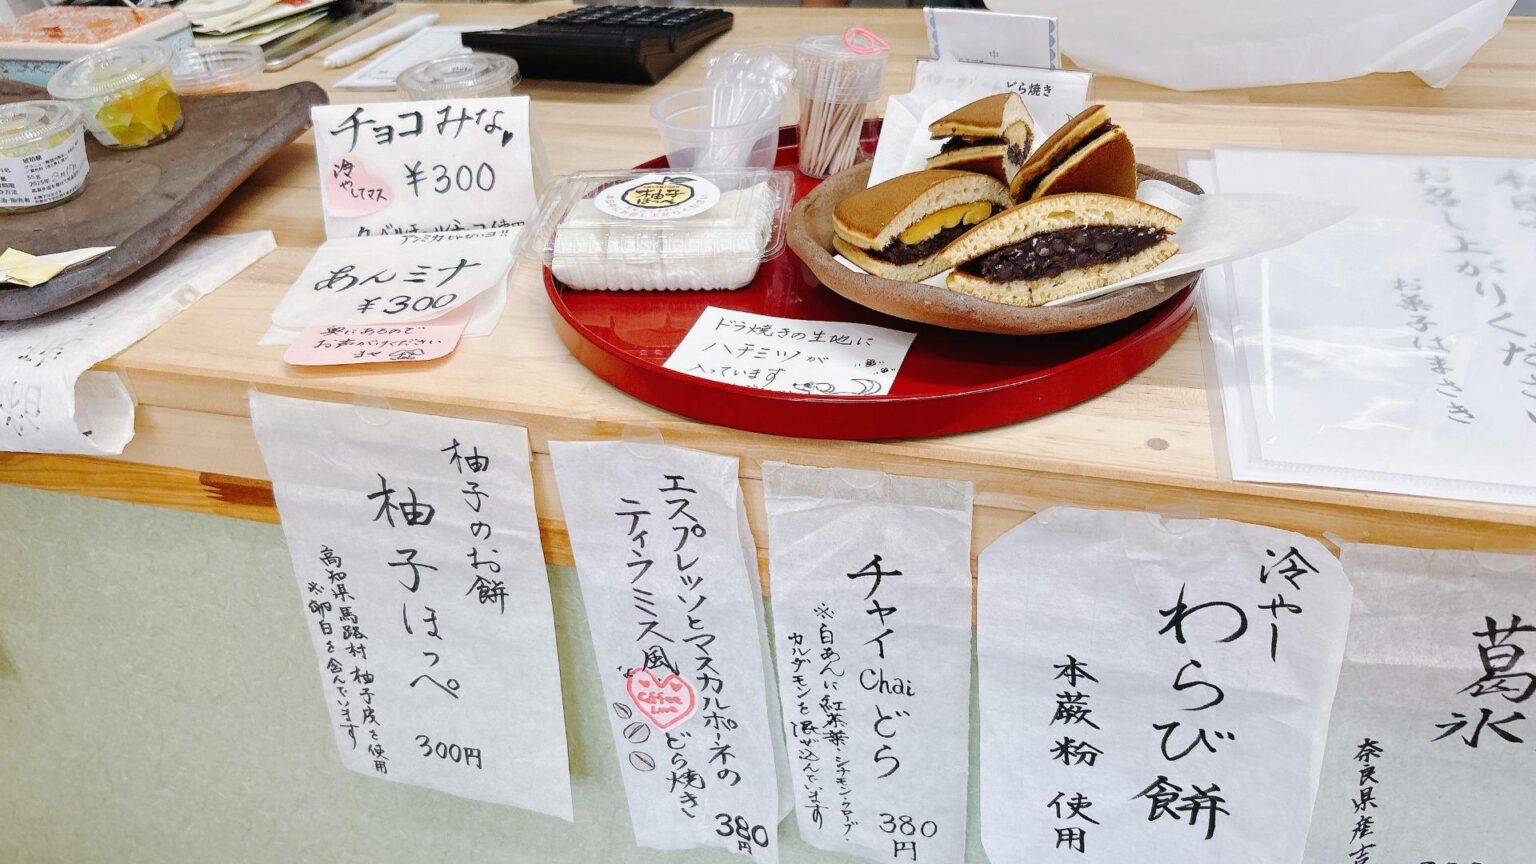 チョコみな
冷やしてマス
¥300
アンミカじゃないヨ!!
あんミナ
¥300
奥にあるので
お声がけください
ませ
柚子
ほっぺ
どら焼き
ドラ焼きの生地に
ハチミツが
入っています
お召し上がりくださ
お菓子はまさき
柚子のお餅
柚子ほっぺ
300円
高知県馬路村 柚子皮を使用
※卵白を含んでいます
エスプレッソとマスカルポーネの
ティラミス風
Coffee
Love
どら焼き
380円
チャイ Chai どら
※白あんに紅茶葉・シナモン・クローブ・
カルダモンを混ぜ込んでいます
380円
冷やし
わらび餅
本蕨粉使用
葛氷
奈良県産吉